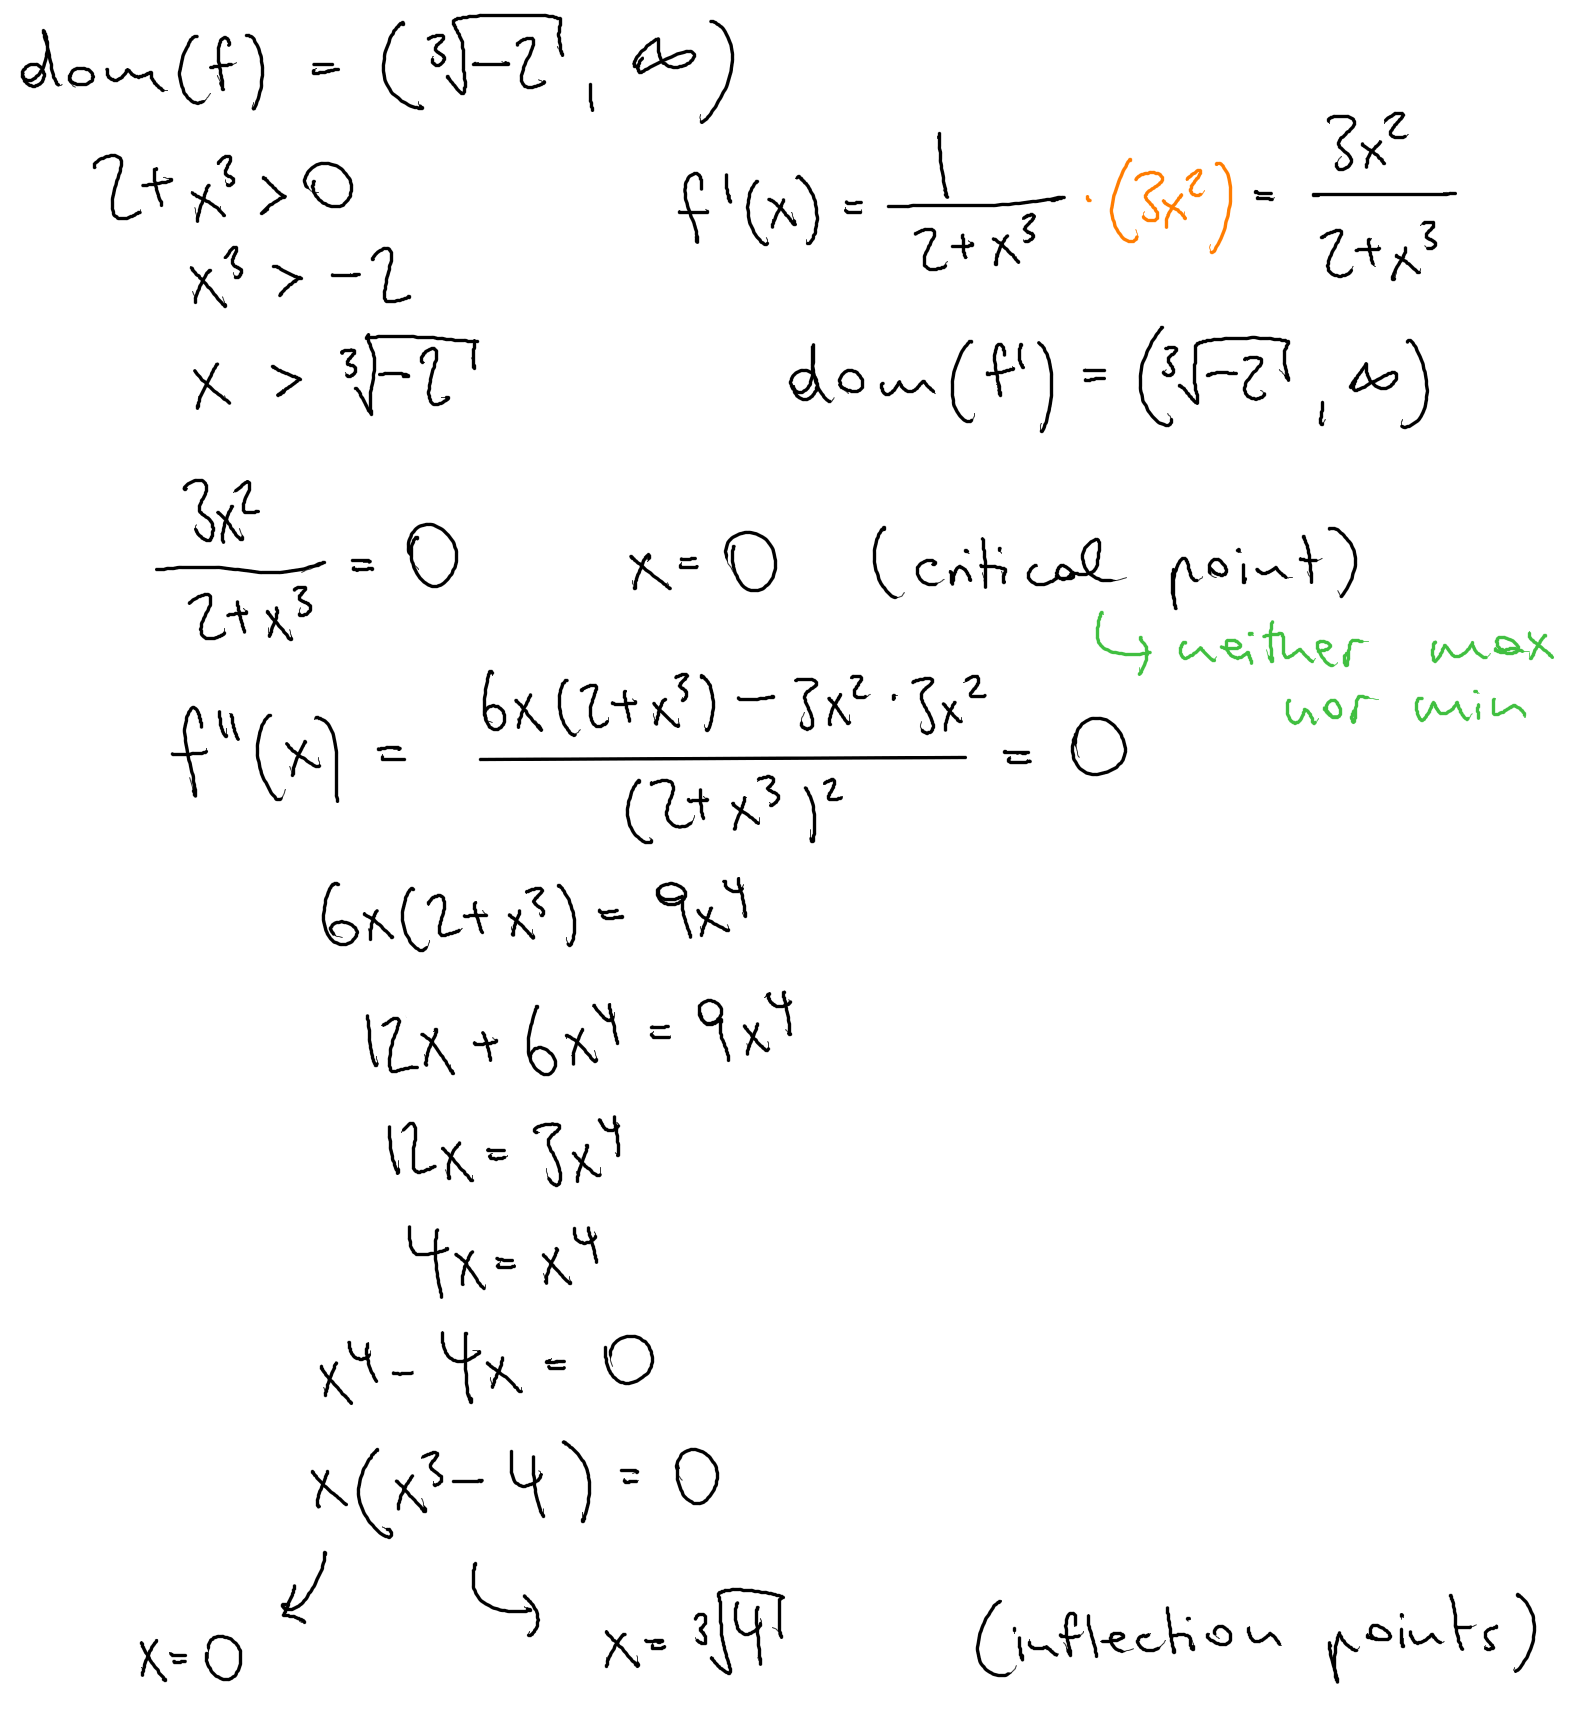 dom(f) = (∛-2, ∞)
2+x³>0
x³ > -2
x > ∛-2
f'(x) = 1/(2+x³) · (3x²) = 3x²/(2+x³)
dom(f') = (∛-2, ∞)
3x²/(2+x³) = 0 x=0 (critical point)
↳ neither max
nor min
f''(x) = (6x(2+x³) - 3x²·3x²)/(2+x³)² = 0
6x(2+x³) = 9x⁴
12x + 6x⁴ = 9x⁴
12x = 3x⁴
4x = x⁴
x⁴ - 4x = 0
x(x³-4) = 0
x=0 x=∛4 (inflection points)